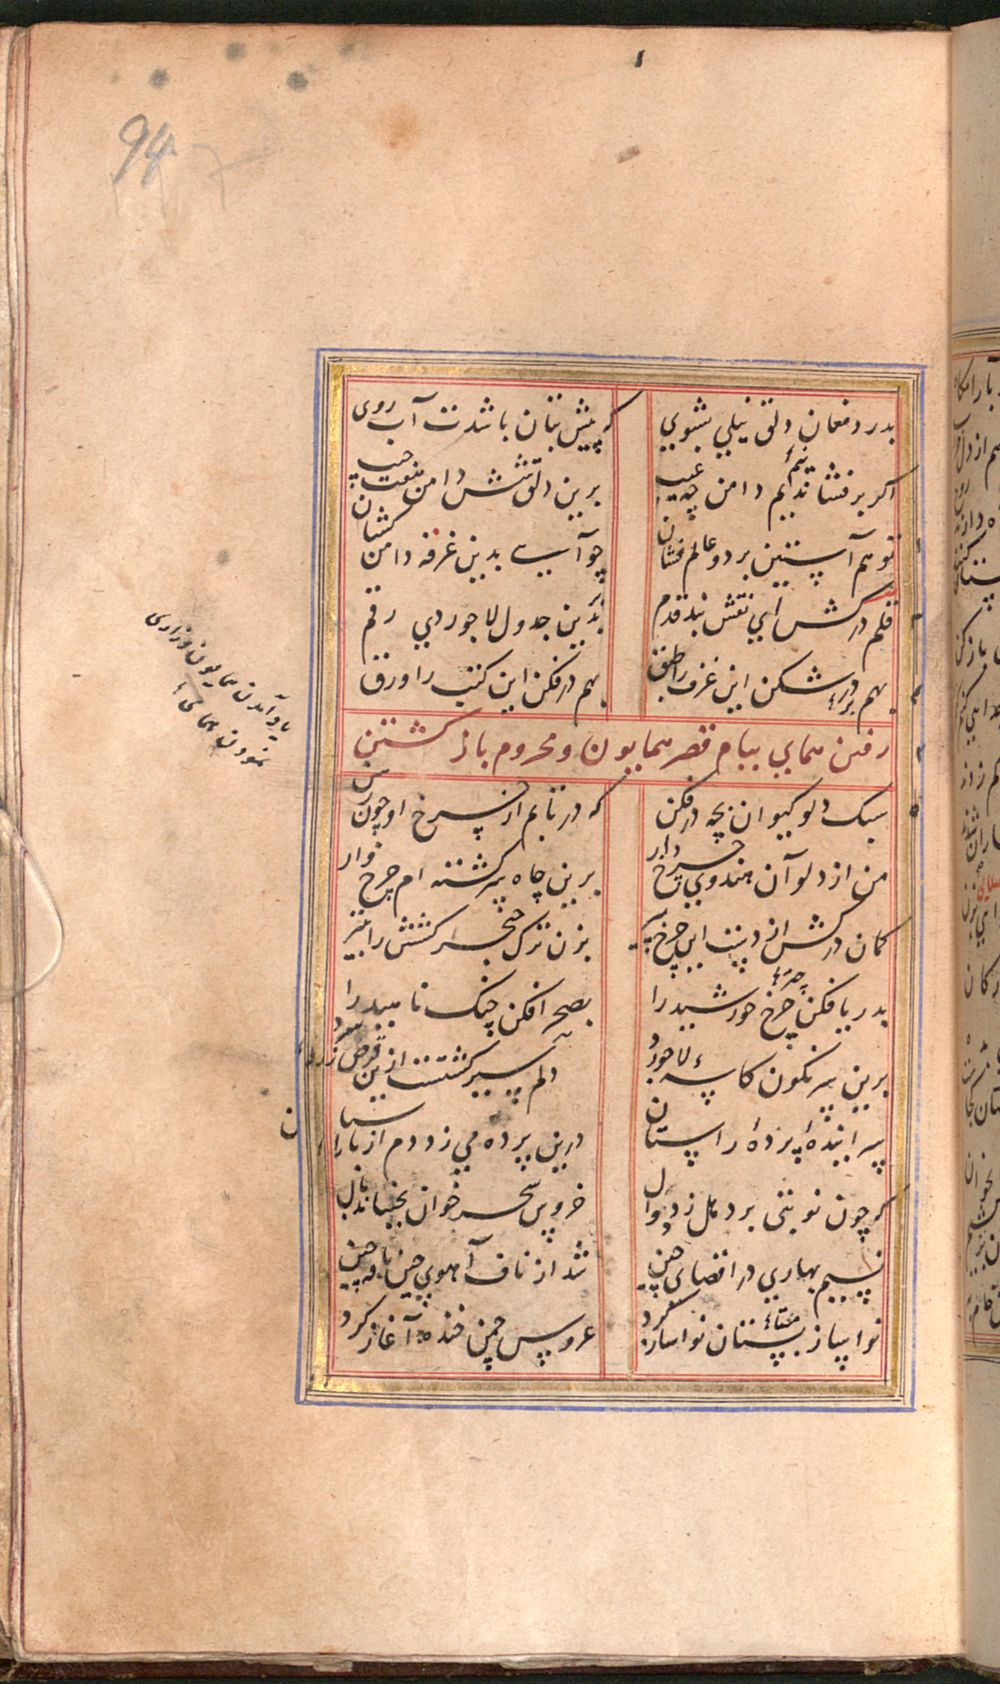 94
بدرد مغان دلق نیلی بشوی
که پیش بتان باشدت آب روی
اگر برفشاندیم دامن چه عیب
برین دلق شش دامن هفت جیب
تو هم آستین بر دو عالم فشان
چو آب بدین غرفه دامن کشان
قلم درکش این نقش بند قدم
بدین جدول لاجوردی رقم
بهم برشکن این غرف را طبق
بهم درفکن این کتب را ورق
رفتن همای ببام قصر همایون و محروم باز گشتن
سبک دلو کیوان بچه درفکن
که در تابم از چرخ او چون رسن
من از دلو آن هندوی چرخ دار
برین چاه سرگشته ام چرخ وار
کمان درکش از دست این چرخ پیر
بزن ترک خنجر کشش را بتیر
بدریا فکن چرخ خورشید را
بصحرا فکن چنگ ناهید را
برین سرنگون کاسه لاجورد
دلم سیر گشتست ازین قرص زرد
سراینده پرده راستان
درین پرده می زد دم از باستان
که چون نوبتی برد مل زد دوال
خروس سحر خوان بجنباند بال
نسیم بهاری در اقصای چین
شد از ناف آهوی چین نافه چین
نواساز بستان نوا ساز کرد
عروس چمن خنده آغاز کرد
یاد آمدن همایون و زاری
نمودن همای